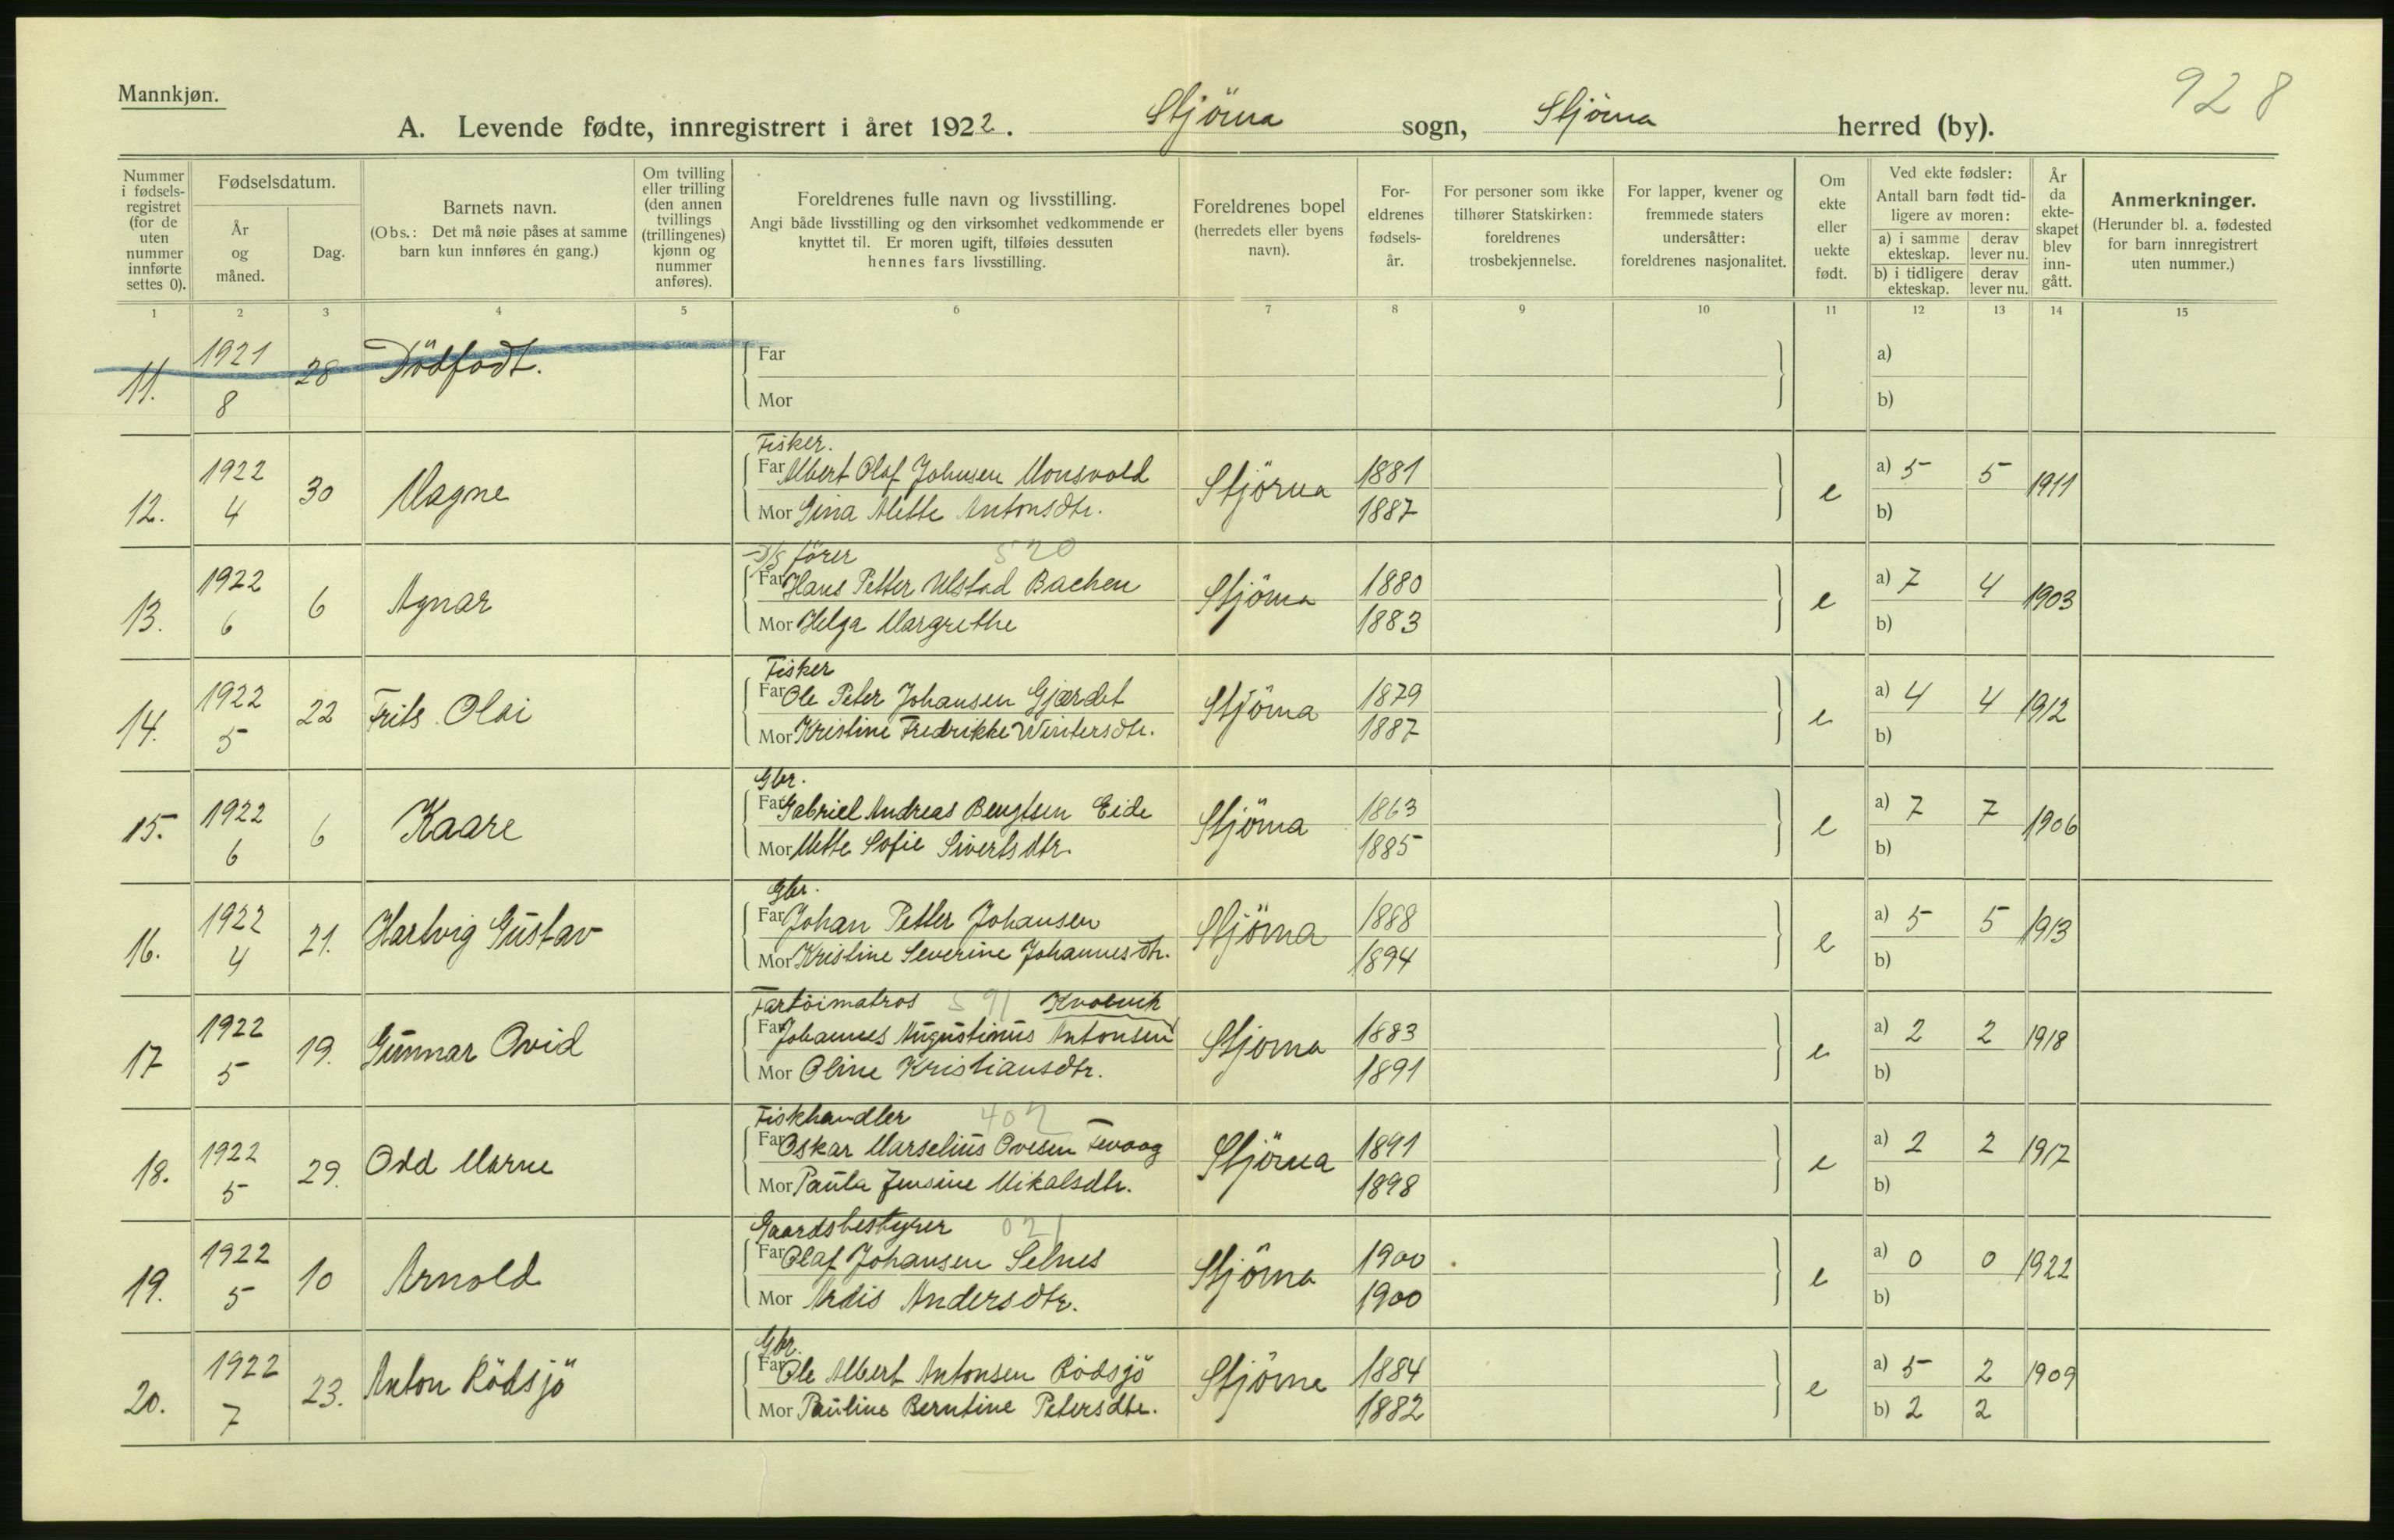 928
Mannkjøn.
A. Levende fødte, innregistrert i året 1922. Stjörna sogn, Stjörna herred (by).
Nummer i fødsels-registret (for de uten nummer innførte settes 0).
Fødselsdatum.
År og måned.
Dag.
Barnets navn.
(Obs.: Det må nøie påses at samme barn kun innføres én gang.)
Om tvilling eller trilling (den annen tvillings (trillingenes) kjønn og nummer anføres).
Foreldrenes fulle navn og livsstilling.
Angi både livsstilling og den virksomhet vedkommende er knyttet til. Er moren ugift, tilføies dessuten hennes fars livsstilling.
Foreldrenes bopel (herredets eller byens navn).
For-eldrenes fødsels-år.
For personer som ikke tilhører Statskirken: foreldrenes trosbekjennelse.
For lapper, kvener og fremmede staters undersåtter: foreldrenes nasjonalitet.
Om ekte eller uekte født.
Ved ekte fødsler: Antall barn født tid-ligere av moren:
a) i samme ekteskap. derav lever nu.
b) i tidligere ekteskap. derav lever nu.
År da ekte-skapet blev inn-gått.
Anmerkninger.
(Herunder bl. a. fødested for barn innregistrert uten nummer.)
1 2 3 4 5 6 7 8 9 10 11 12 13 14 15
11. 1921 8 28 Dödfödt.
Far a)
Mor b)
Fisker.
12. 1922 4 30 Magne
Far Albert Olaf Johnsen Monsvold Stjörna 1881 e a) 5 5 1911
Mor Gina Mette Antonsdtr. 1887 b)
D/S förer 520
13. 1922 6 6 Agnar
Far Hans Petter Ulstad Bachen Stjörna 1880 e a) 7 4 1903
Mor Helga Margrethe 1883 b)
Fisker
14. 1922 5 22 Frits Olai
Far Ole Peter Johansen Gjærdet Stjörna 1879 e a) 4 4 1912
Mor Kristine Fredrikke Wintersdtr. 1887 b)
Gbr.
15. 1922 6 6 Kaare
Far Gabriel Andreas Bengtsen Eide Stjörna 1863 e a) 7 7 1906
Mor Mette Sofie Sivertsdtr. 1885 b)
Gbr.
16. 1922 4 21. Hartvig Gustav
Far Johan Petter Johansen Stjörna 1888 e a) 5 5 1913
Mor Kristine Severine Johannesdtr. 1894 b)
Fartöimatros 591
17 1922 5 19. Gunnar Ovid
Far Johannes Augustinus Antonsen Stjorna 1883 e a) 2 2 1918
Mor Oline Kristiansdtr. 1891 b)
Fiskhandler 402
18. 1922 5 29. Odd Marne
Far Oskar Marselius Ovesen Fevaag Stjörna 1891 e a) 2 2 1917
Mor Paula Jensine Mikalsdtr. 1898 b)
Gaardsbestyrer 021
19. 1922 5 10 Arnold
Far Olaf Johansen Selnes Stjörna 1900 e a) 0 0 1922
Mor Ardis Andersdtr. 1900 b)
Gbr.
20. 1922 7 23. Anton Rödsjö
Far Ole Albert Antonsen Rödsjö Stjörna 1884 e a) 5 2 1909
Mor Pauline Berntine Petersdtr. 1882 b) 2 2